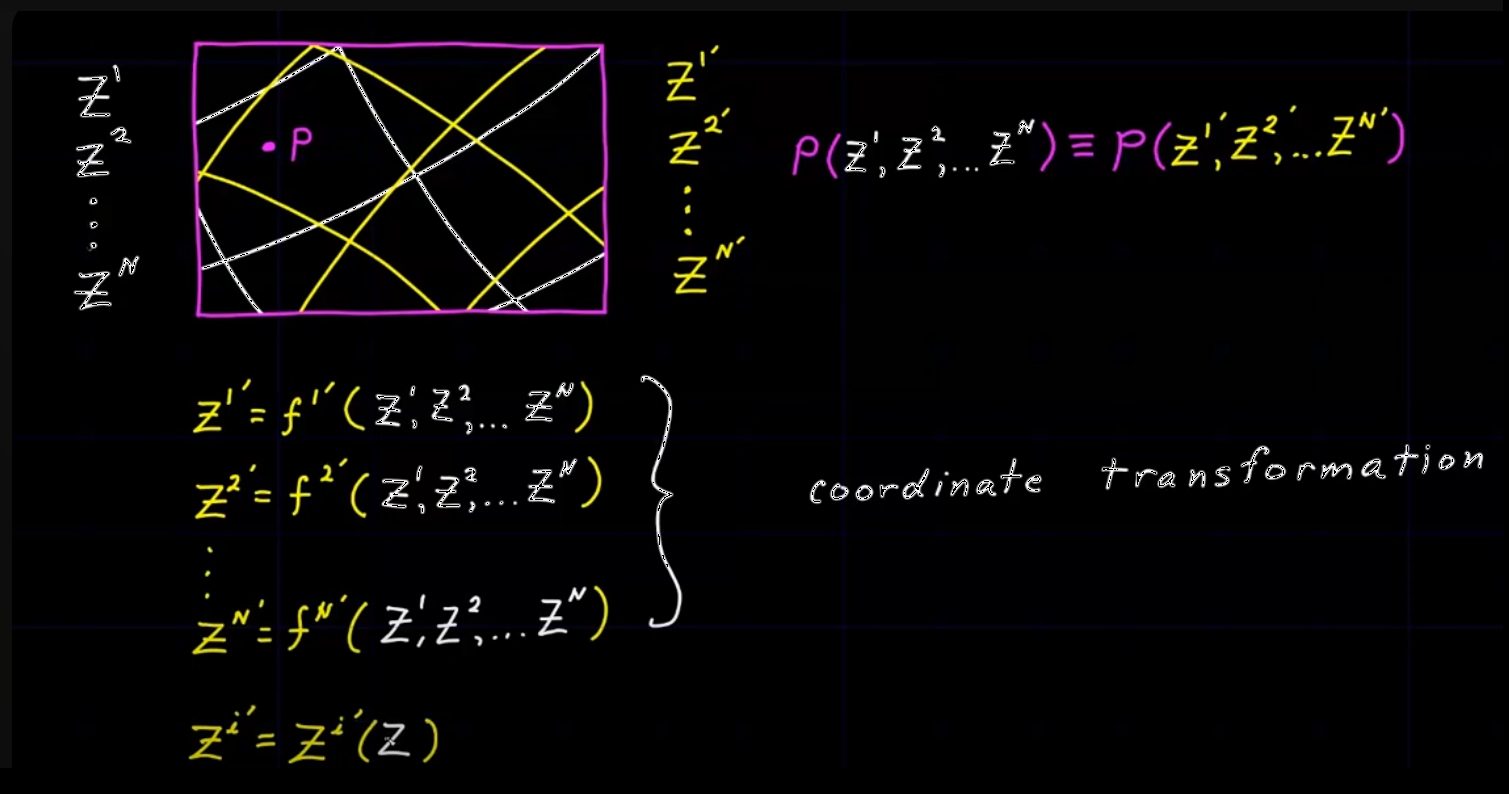 Z¹
Z²
⋮
Z^N
P
Z^1′
Z^2′
⋮
Z^N′
P(Z¹, Z², ... Z^N) ≡ P(Z^1′, Z^2′, ... Z^N′)
Z^1′ = f^1′(Z¹, Z², ... Z^N)
Z^2′ = f^2′(Z¹, Z², ... Z^N)
⋮
Z^N′ = f^N′(Z¹, Z², ... Z^N)
coordinate transformation
Z^i′ = Z^i′(Z)